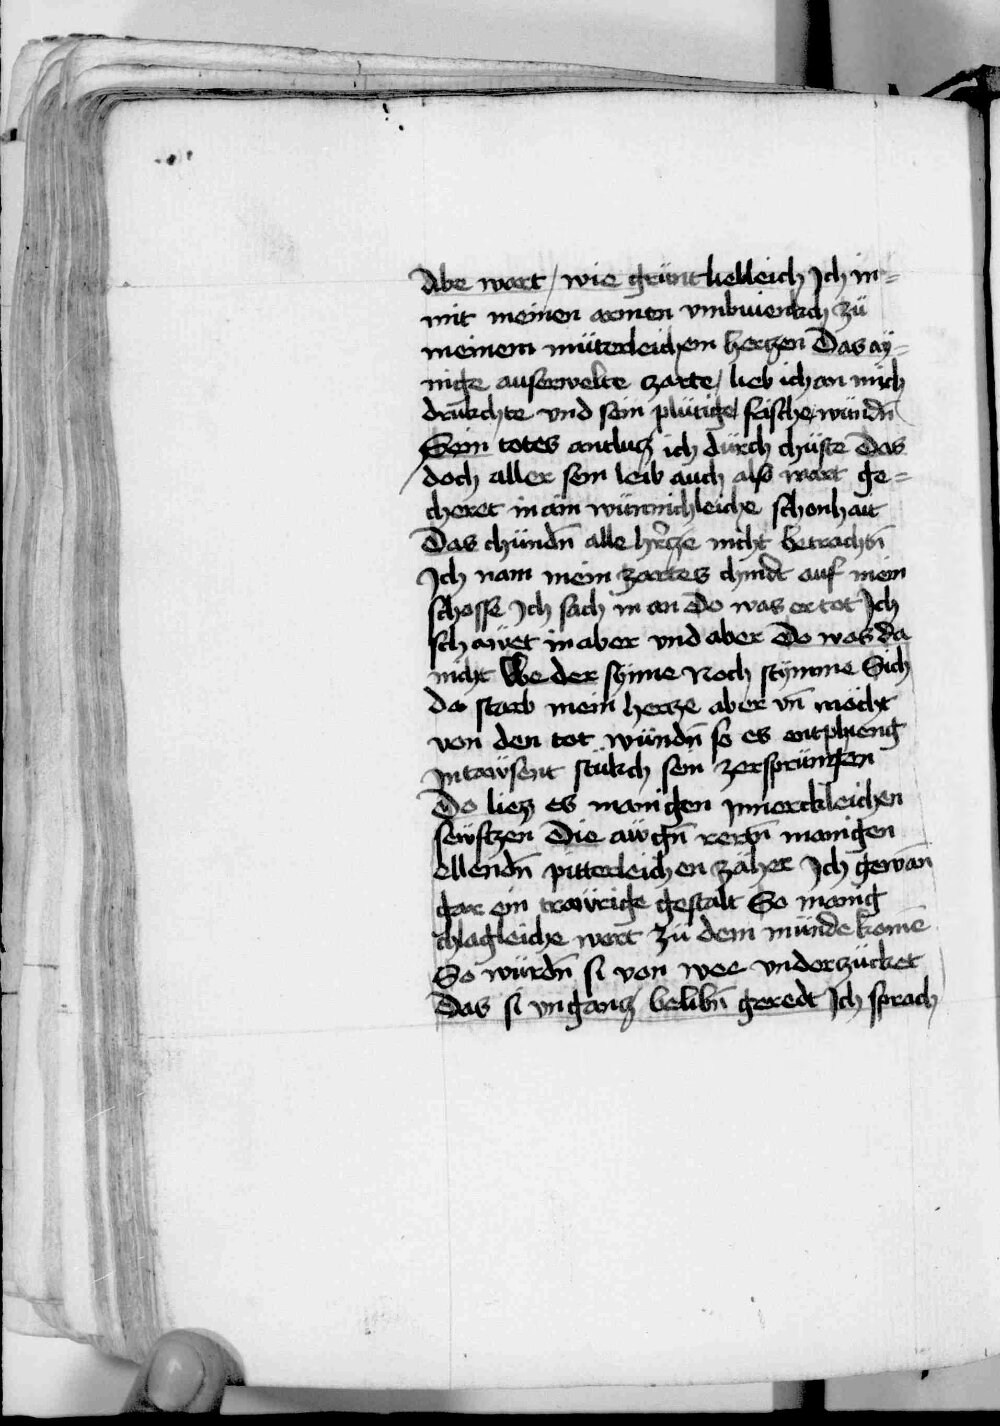 Abe wart / wie grüntlielleich Ich in=
mit meinen armen vmbuienkch zü
meinem müterleichem hertzen Das ay=
nige auserwelte zarte / lieb ich an mich
drükchte vnd sein plütige frische wündn̄
Sein totes antlutz ich dürch chüste Das
doch aller sein leib auch also wart ge=
cheret in ain wünnichleiche schonhait
Das chündn̄ alle hercze nicht betrachtn̄
Ich nam mein zartes chindt auf mein
schosse Ich sach in an Do was er tot Ich
schawet in aber vnd aber Do was da
nicht We der synne Noch stymme Sich
da starb mein hercze aber vn̄ möcht
von den tot wündn̄ so es entphieng
In tawsent stükch sein zersprüngen
Do liez es manigen Innerckleichen
sewftzen Die awgn̄ rertn̄ manigen
ellendn̄ pitterleichen zäher Ich gewan̄
gar ein trawrige gestalt So manig
chlagleiche wort zü dem münde komē
So würdn̄ si von wee vnderzücket
Das si vngantz belibn̄ geredt Ich sprach